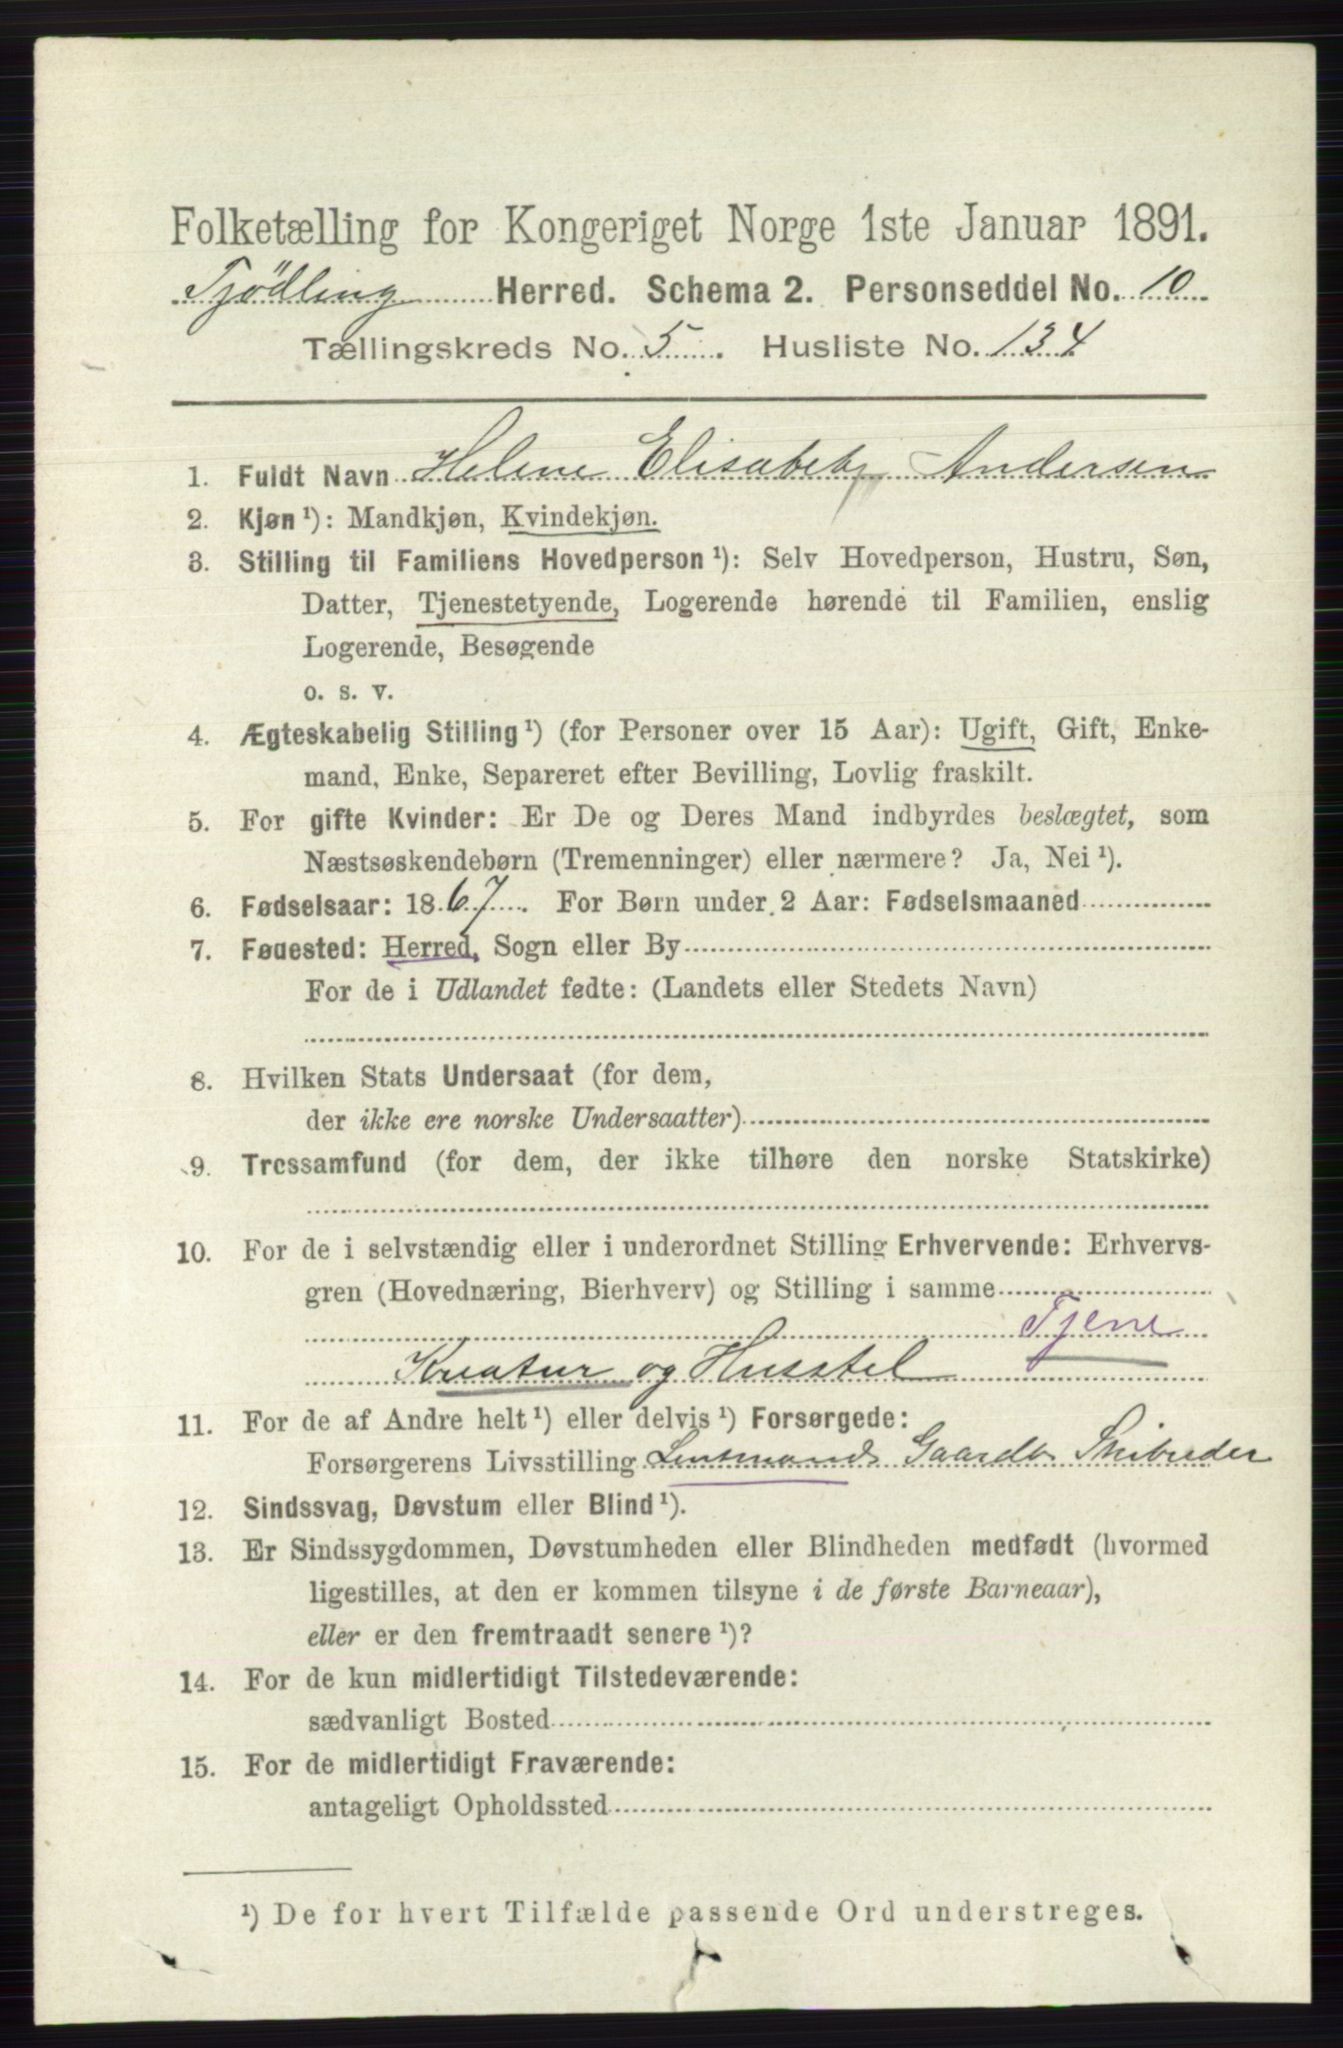 Folketælling for Kongeriget Norge 1ste Januar 1891.
Tjödling Herred. Schema 2. Personseddel No. 10
Tællingskreds No. 5. Husliste No. 134
1. Fuldt Navn Helene Elisabeth Andersen
2. Kjøn ¹): Mandkjøn, Kvindekjøn.
3. Stilling til Familiens Hovedperson ¹): Selv Hovedperson, Hustru, Søn,
Datter, Tjenestetyende, Logerende hørende til Familien, enslig
Logerende, Besøgende
o. s. v.
4. Ægteskabelig Stilling ¹) (for Personer over 15 Aar): Ugift, Gift, Enke-
mand, Enke, Separeret efter Bevilling, Lovlig fraskilt.
5. For gifte Kvinder: Er De og Deres Mand indbyrdes beslægtet, som
Næstsøskendebørn (Tremenninger) eller nærmere? Ja, Nei ¹).
6. Fødselsaar: 1867. For Børn under 2 Aar: Fødselsmaaned
7. Fødested: Herred, Sogn eller By
For de i Udlandet fødte: (Landets eller Stedets Navn)
8. Hvilken Stats Undersaat (for dem,
der ikke ere norske Undersaatter)
9. Trossamfund (for dem, der ikke tilhøre den norske Statskirke)
10. For de i selvstændig eller i underordnet Stilling Erhvervende: Erhvervs-
gren (Hovednæring, Bierhverv) og Stilling i samme
Tjene
Kreatur og Husstel
11. For de af Andre helt ¹) eller delvis ¹) Forsørgede:
Forsørgerens Livsstilling Lensmand Gaardb.
12. Sindssvag, Døvstum eller Blind ¹).
13. Er Sindssygdommen, Døvstumheden eller Blindheden medfødt (hvormed
ligestilles, at den er kommen tilsyne i de første Barneaar),
eller er den fremtraadt senere ¹)?
14. For de kun midlertidigt Tilstedeværende:
sædvanligt Bosted
15. For de midlertidigt Fraværende:
antageligt Opholdssted
¹) De for hvert Tilfælde passende Ord understreges.